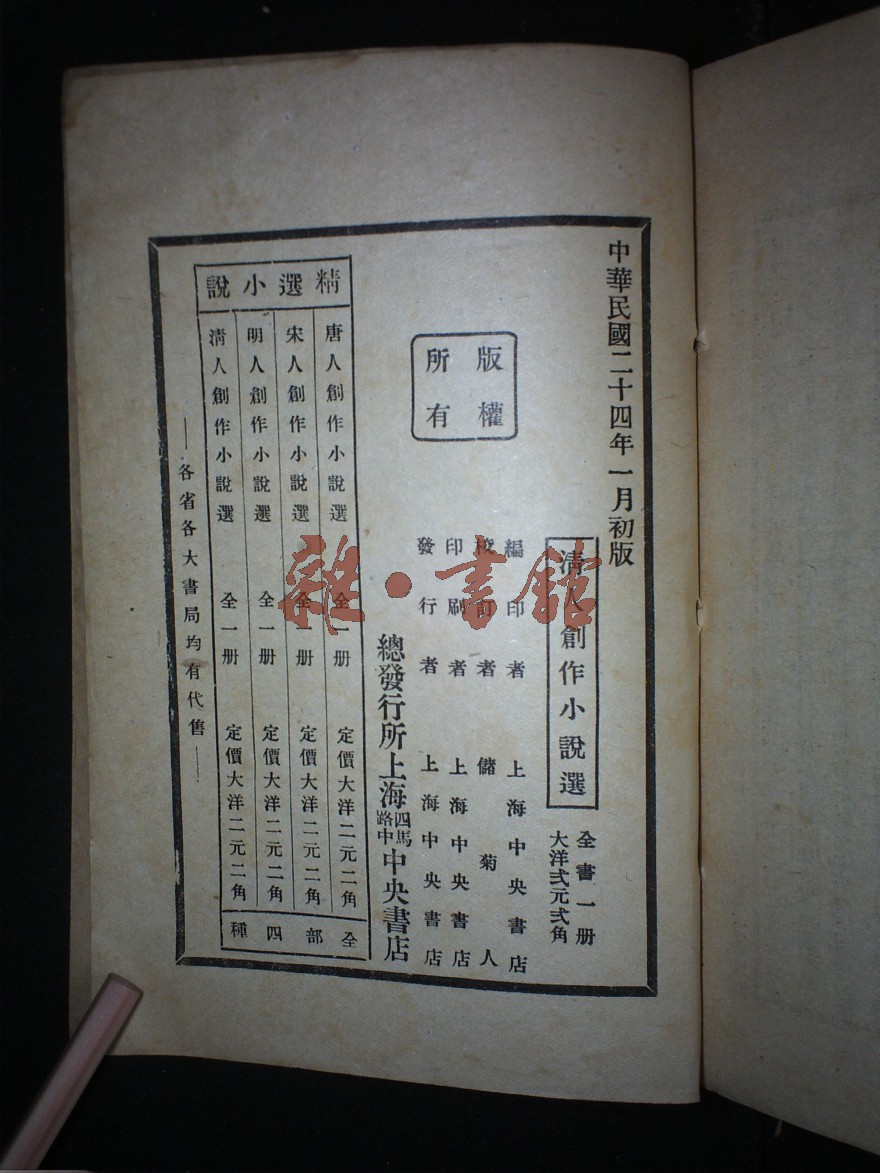 中華民國二十四年一月初版
清人創作小說選
全書一册
大洋弍元弍角
版權
所有
編印者 上海中央書店
校訂者 儲菊人
印刷者 上海中央書店
發行者 上海中央書店
總發行所上海四馬路中中央書店
精選小說
唐人創作小說選 全一册 定價大洋二元二角
宋人創作小說選 全一册 定價大洋二元二角
明人創作小說選 全一册 定價大洋二元二角
清人創作小說選 全一册 定價大洋二元二角
全部四種
各省各大書局均有代售
雜·書館